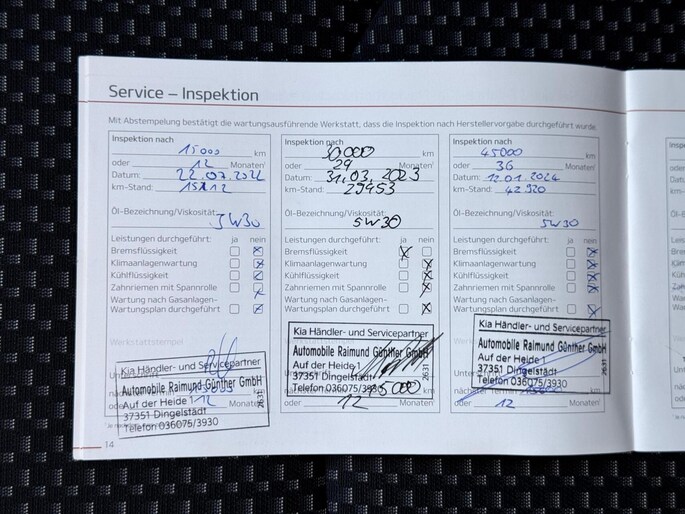 Service – Inspektion
Mit Abstempelung bestätigt die wartungsausführende Werkstatt, dass die Inspektion nach Herstellervorgabe durchgeführt wurde
Inspektion nach
15000 km
oder 12 Monaten¹
Datum: 22.07.2022
km-Stand:
Öl-Bezeichnung/Viskosität:
5W30
Leistungen durchgeführt: ja nein
Bremsflüssigkeit
Klimaanlagenwartung
Kühlflüssigkeit
Zahnriemen mit Spannrolle
Wartung nach Gasanlagen-
Wartungsplan durchgeführt
Werkstattstempel
Kia Händler- und Servicepartner
Automobile Raimund Günther GmbH
Auf der Heide 1
37351 Dingelstädt
Telefon 036075/3930
26:31
oder 12 Monaten¹
Inspektion nach
30.000 km
oder 24 Monaten¹
Datum: 31.03.2023
km-Stand: 29453
Öl-Bezeichnung/Viskosität:
5W30
Leistungen durchgeführt: ja nein
Bremsflüssigkeit
Klimaanlagenwartung
Kühlflüssigkeit
Zahnriemen mit Spannrolle
Wartung nach Gasanlagen-
Wartungsplan durchgeführt
Kia Händler- und Servicepartner
Automobile Raimund Günther GmbH
Auf der Heide 1
37351 Dingelstädt
Telefon 036075/3930
26:31
45000 km
oder 12 Monaten¹
Inspektion nach
45000 km
oder 36 Monaten¹
Datum: 12.01.2024
km-Stand: 42920
Öl-Bezeichnung/Viskosität:
5W30
Leistungen durchgeführt: ja nein
Bremsflüssigkeit
Klimaanlagenwartung
Kühlflüssigkeit
Zahnriemen mit Spannrolle
Wartung nach Gasanlagen-
Wartungsplan durchgeführt
Kia Händler- und Servicepartner
Automobile Raimund Günther GmbH
Auf der Heide 1
37351 Dingelstädt
Telefon 036075/3930
26:31
nächster Termin km
oder 12 Monaten¹
14